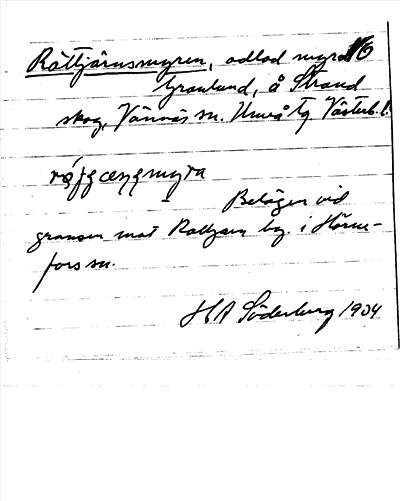 Råttjärnsmyren, odlad myr 16
Granlund, å Strand
skog, Vännäs sn. Umeå tg Västerb. l.
Belägen vid
gränsen mot Rattjärn by. i Hörne-
fors sn.
H A Söderberg 1934